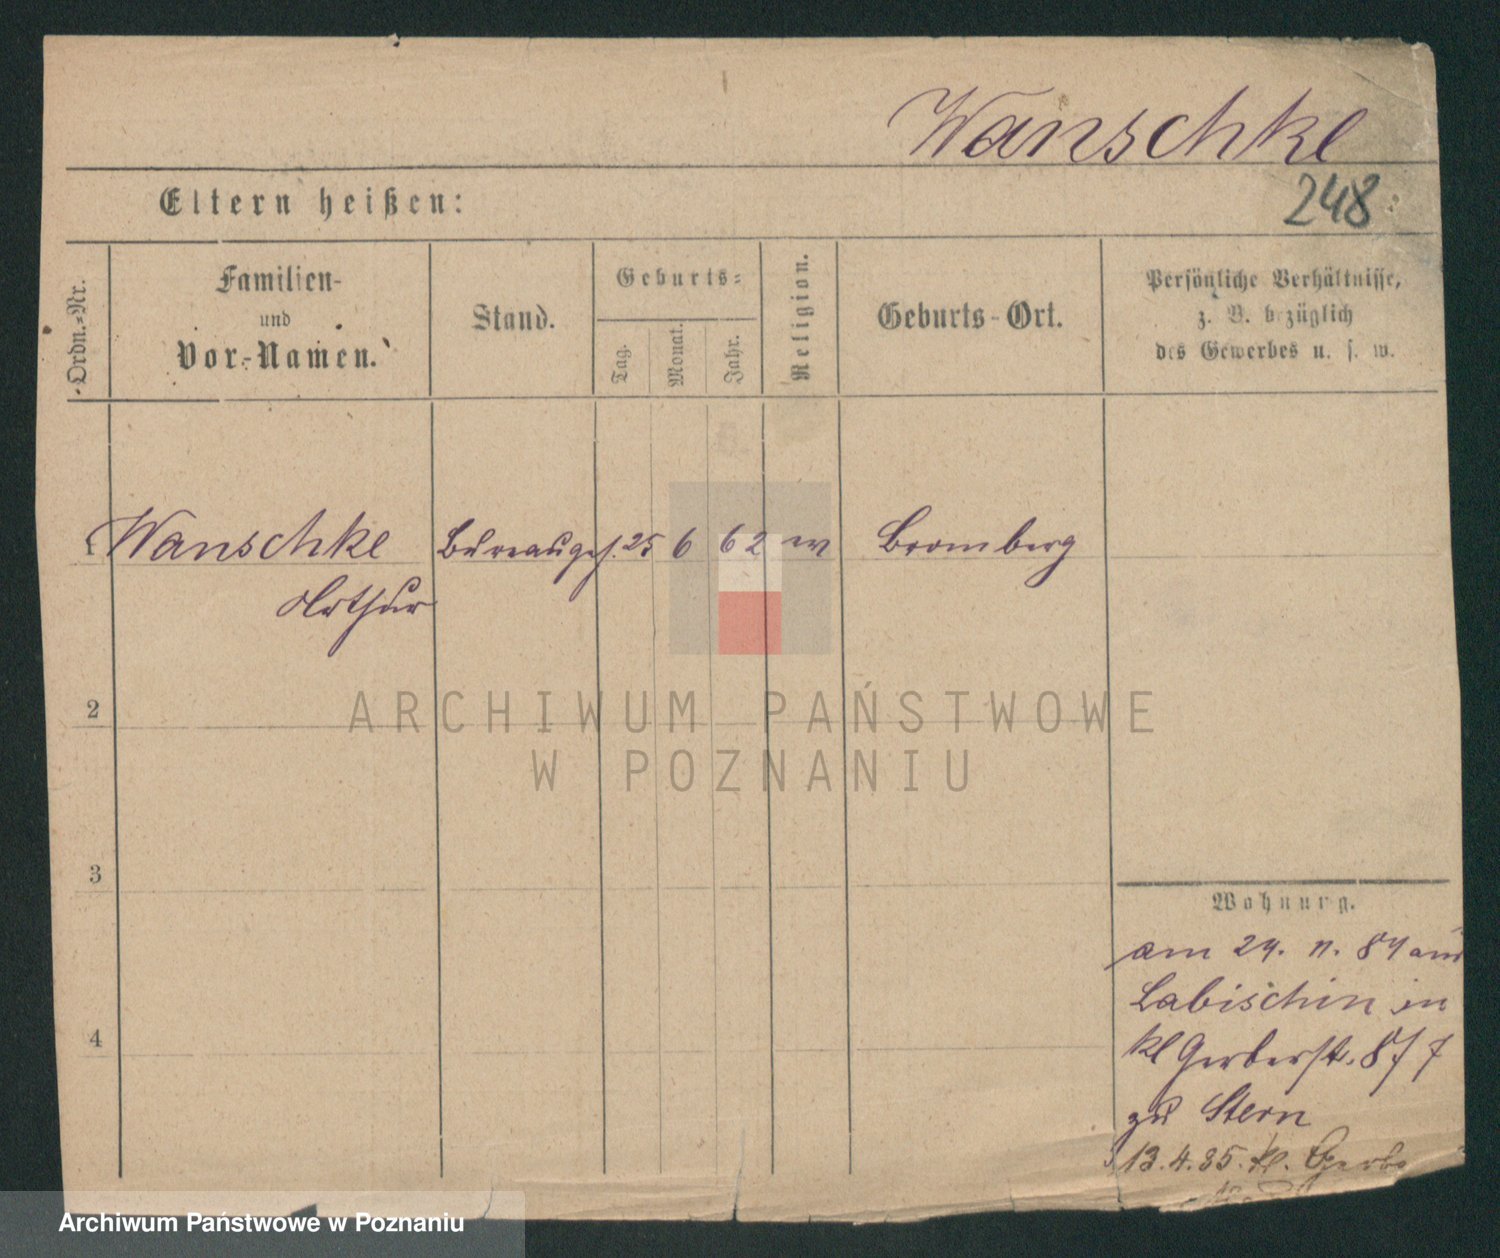 Wanschke
248
Eltern heißen:
Ordn.-Nr.
Familien-
und
Vor-Namen.
Stand.
Geburts-
Tag.
Monat.
Jahr.
Religion.
Geburts-Ort.
Persönliche Verhältnisse,
z. B. bezüglich
des Gewerbes u. s. w.
1 Wanschke Bureaugeh. 25 6 62 Bromberg
Arthur
2
ARCHIWUM PAŃSTWOWE
W POZNANIU
3
4
Wohnung.
am 24. 11. 84 aus
Labischin in
kl Gerberstr. 8/7
zu Stern
13.4.85. kl. Gerb
Archiwum Państwowe w Poznaniu